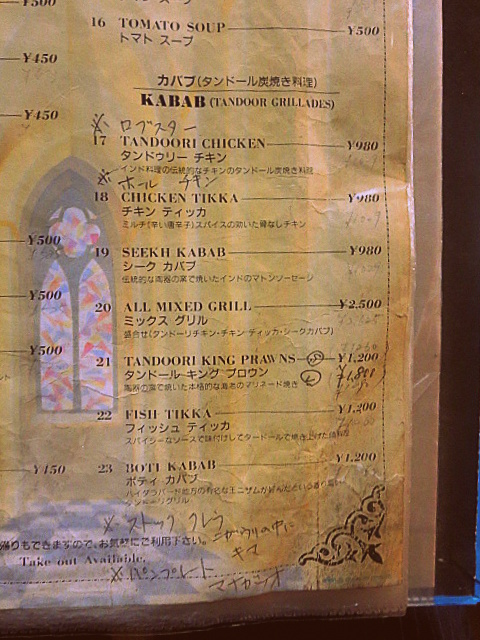 ¥500
16 TOMATO SOUP ¥500
トマト スープ
¥450
カバブ(タンドール炭焼き料理)
KABAB (TANDOOR GRILLADES)
¥450
※ ロブスター
17 TANDOORI CHICKEN ¥980
タンドゥリー チキン
インド料理の伝統的なチキンのタンドール炭焼き料理
※ ホール チキン
18 CHICKEN TIKKA ¥980
チキン ティッカ
ミルチ(辛い唐辛子)スパイスの効いた骨なしチキン
¥500
19 SEEKH KABAB ¥980
シーク カバブ
伝統的な陶器の窯で焼いたインドのマトンソーセージ
¥500
20 ALL MIXED GRILL ¥2,500
ミックス グリル
盛合せ(タンドーリチキン・チキン ティッカ・シークカバブ)
¥500
21 TANDOORI KING PRAWNS ¥1,200
タンドール キング プロウン
陶器の窯で焼いた本格的な海老のマリネード焼き
22 FISH TIKKA ¥1,200
フィッシュ ティッカ
スパイシーなソースで味付けしてタードールで焼き上げた
¥450
23 BOTI KABAB ¥1,200
ボティ カバブ
ハイダラバード地方の有名な王ニザムが好んだという
※ ストック
帰りもできますので、お気軽にご利用下さい。
Take out Available.
※ パンプレート